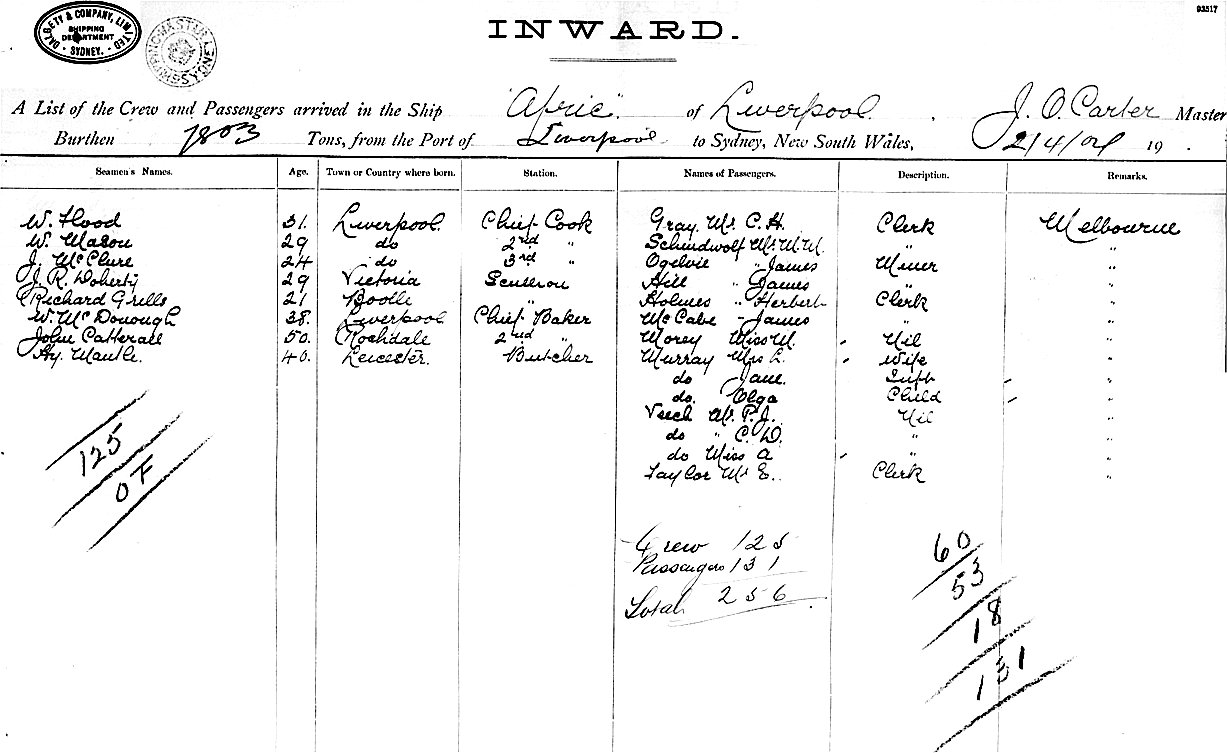 93517
DALGETY & COMPANY, LIMITED
SHIPPING
DEPARTMENT
SYDNEY.
SHIPPING MASTER SYDNEY
INWARD.
A List of the Crew and Passengers arrived in the Ship "Afric" of Liverpool. J. O. Carter Master
Burthen 7803 Tons, from the Port of Liverpool to Sydney, New South Wales, 2/4/04 19 .
Seamen's Names. Age. Town or Country where born. Station. Names of Passengers. Description. Remarks.
W. Hood 31. Liverpool. Chief Cook Gray Mr. C. H. Clerk Melbourne
W. Mason 29 do 2nd " Schindwolf Mr. W. M. " "
J. McClure 24 do 3rd " Ogilvie " James Miner "
J. R. Doherty 29 Victoria Scullion Hill " James " "
Richard Grills 21 Bootle " Holmes " Herbert Clerk "
W. McDonough 38. Liverpool Chief Baker McCabe " James " "
John Catterall 50. Rochdale 2nd " Morey Miss M. Nil "
Hy. Mantle. 40. Leicester. Butcher Murray Mrs L. Wife "
do Jane. "
do. Olga Child "
Veech Mr. P. J. Nil "
do " C. D. " "
do Miss A " "
Taylor Mr E. Clerk "
125
OF
Crew 125
Passengers 131
Total 256
60
53
18
131